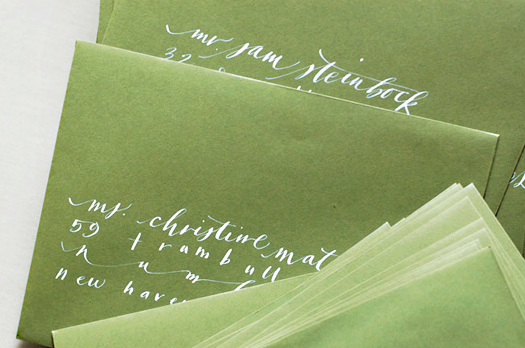 mr. sam steinbock
ms. christine mat
59 trumbull
num
new haven